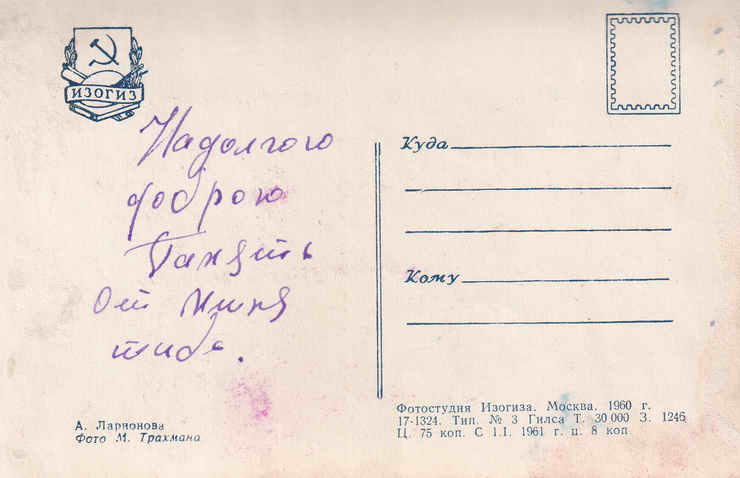 ИЗОГИЗ
Надолгого
доброю
Память
От миня
тибе.
А. Ларионова
Фото М. Трахмана
Куда
Кому
Фотостудия Изогиза. Москва. 1960 г.
17-1324. Тип. № 3 Гилса Т. 30 000 З. 1246
Ц. 75 коп. С 1.I. 1961 г. ц. 8 коп